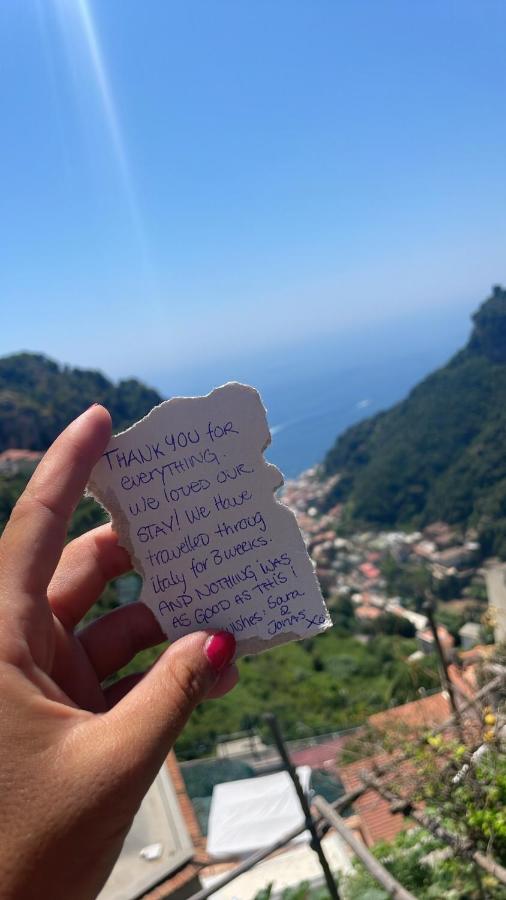 THANK YOU for
everything.
We loved our
STAY! We Have
travelled throug
italy for 3 weeks.
AND NOTHING WAS
AS GOOD AS THIS!
wishes: Sara
&
Jonas xo